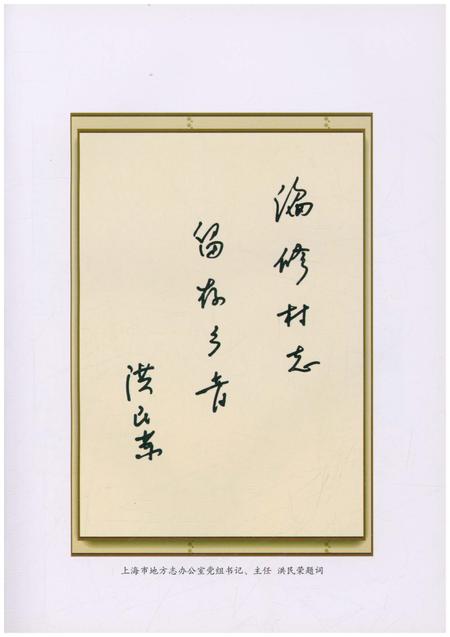 编修村志
留存乡音
洪民荣
上海市地方志办公室党组书记、主任 洪民荣题词